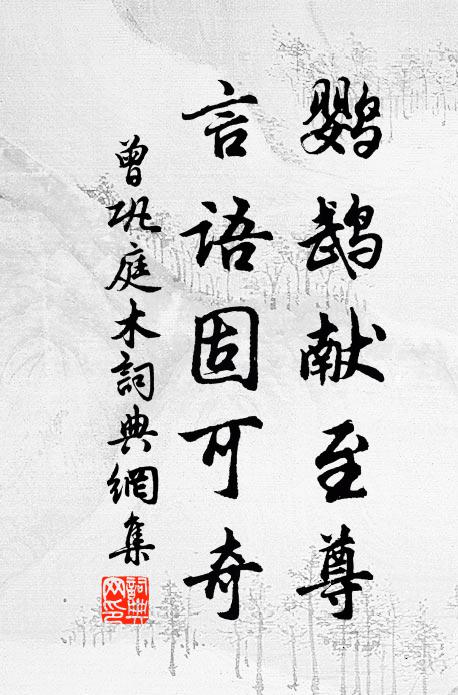 鹦鹉献至尊
言语固可奇
曾巩庭木詞典網集
詞典网印